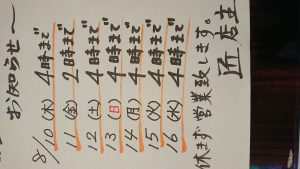 お知らせ
8/10(木) 4時まで
11(金) 2時まで
12(土) 4時まで
13(日) 4時まで
14(月) 4時まで
15(火) 4時まで
16(水) 4時まで
休まず営業致します。
匠 店主